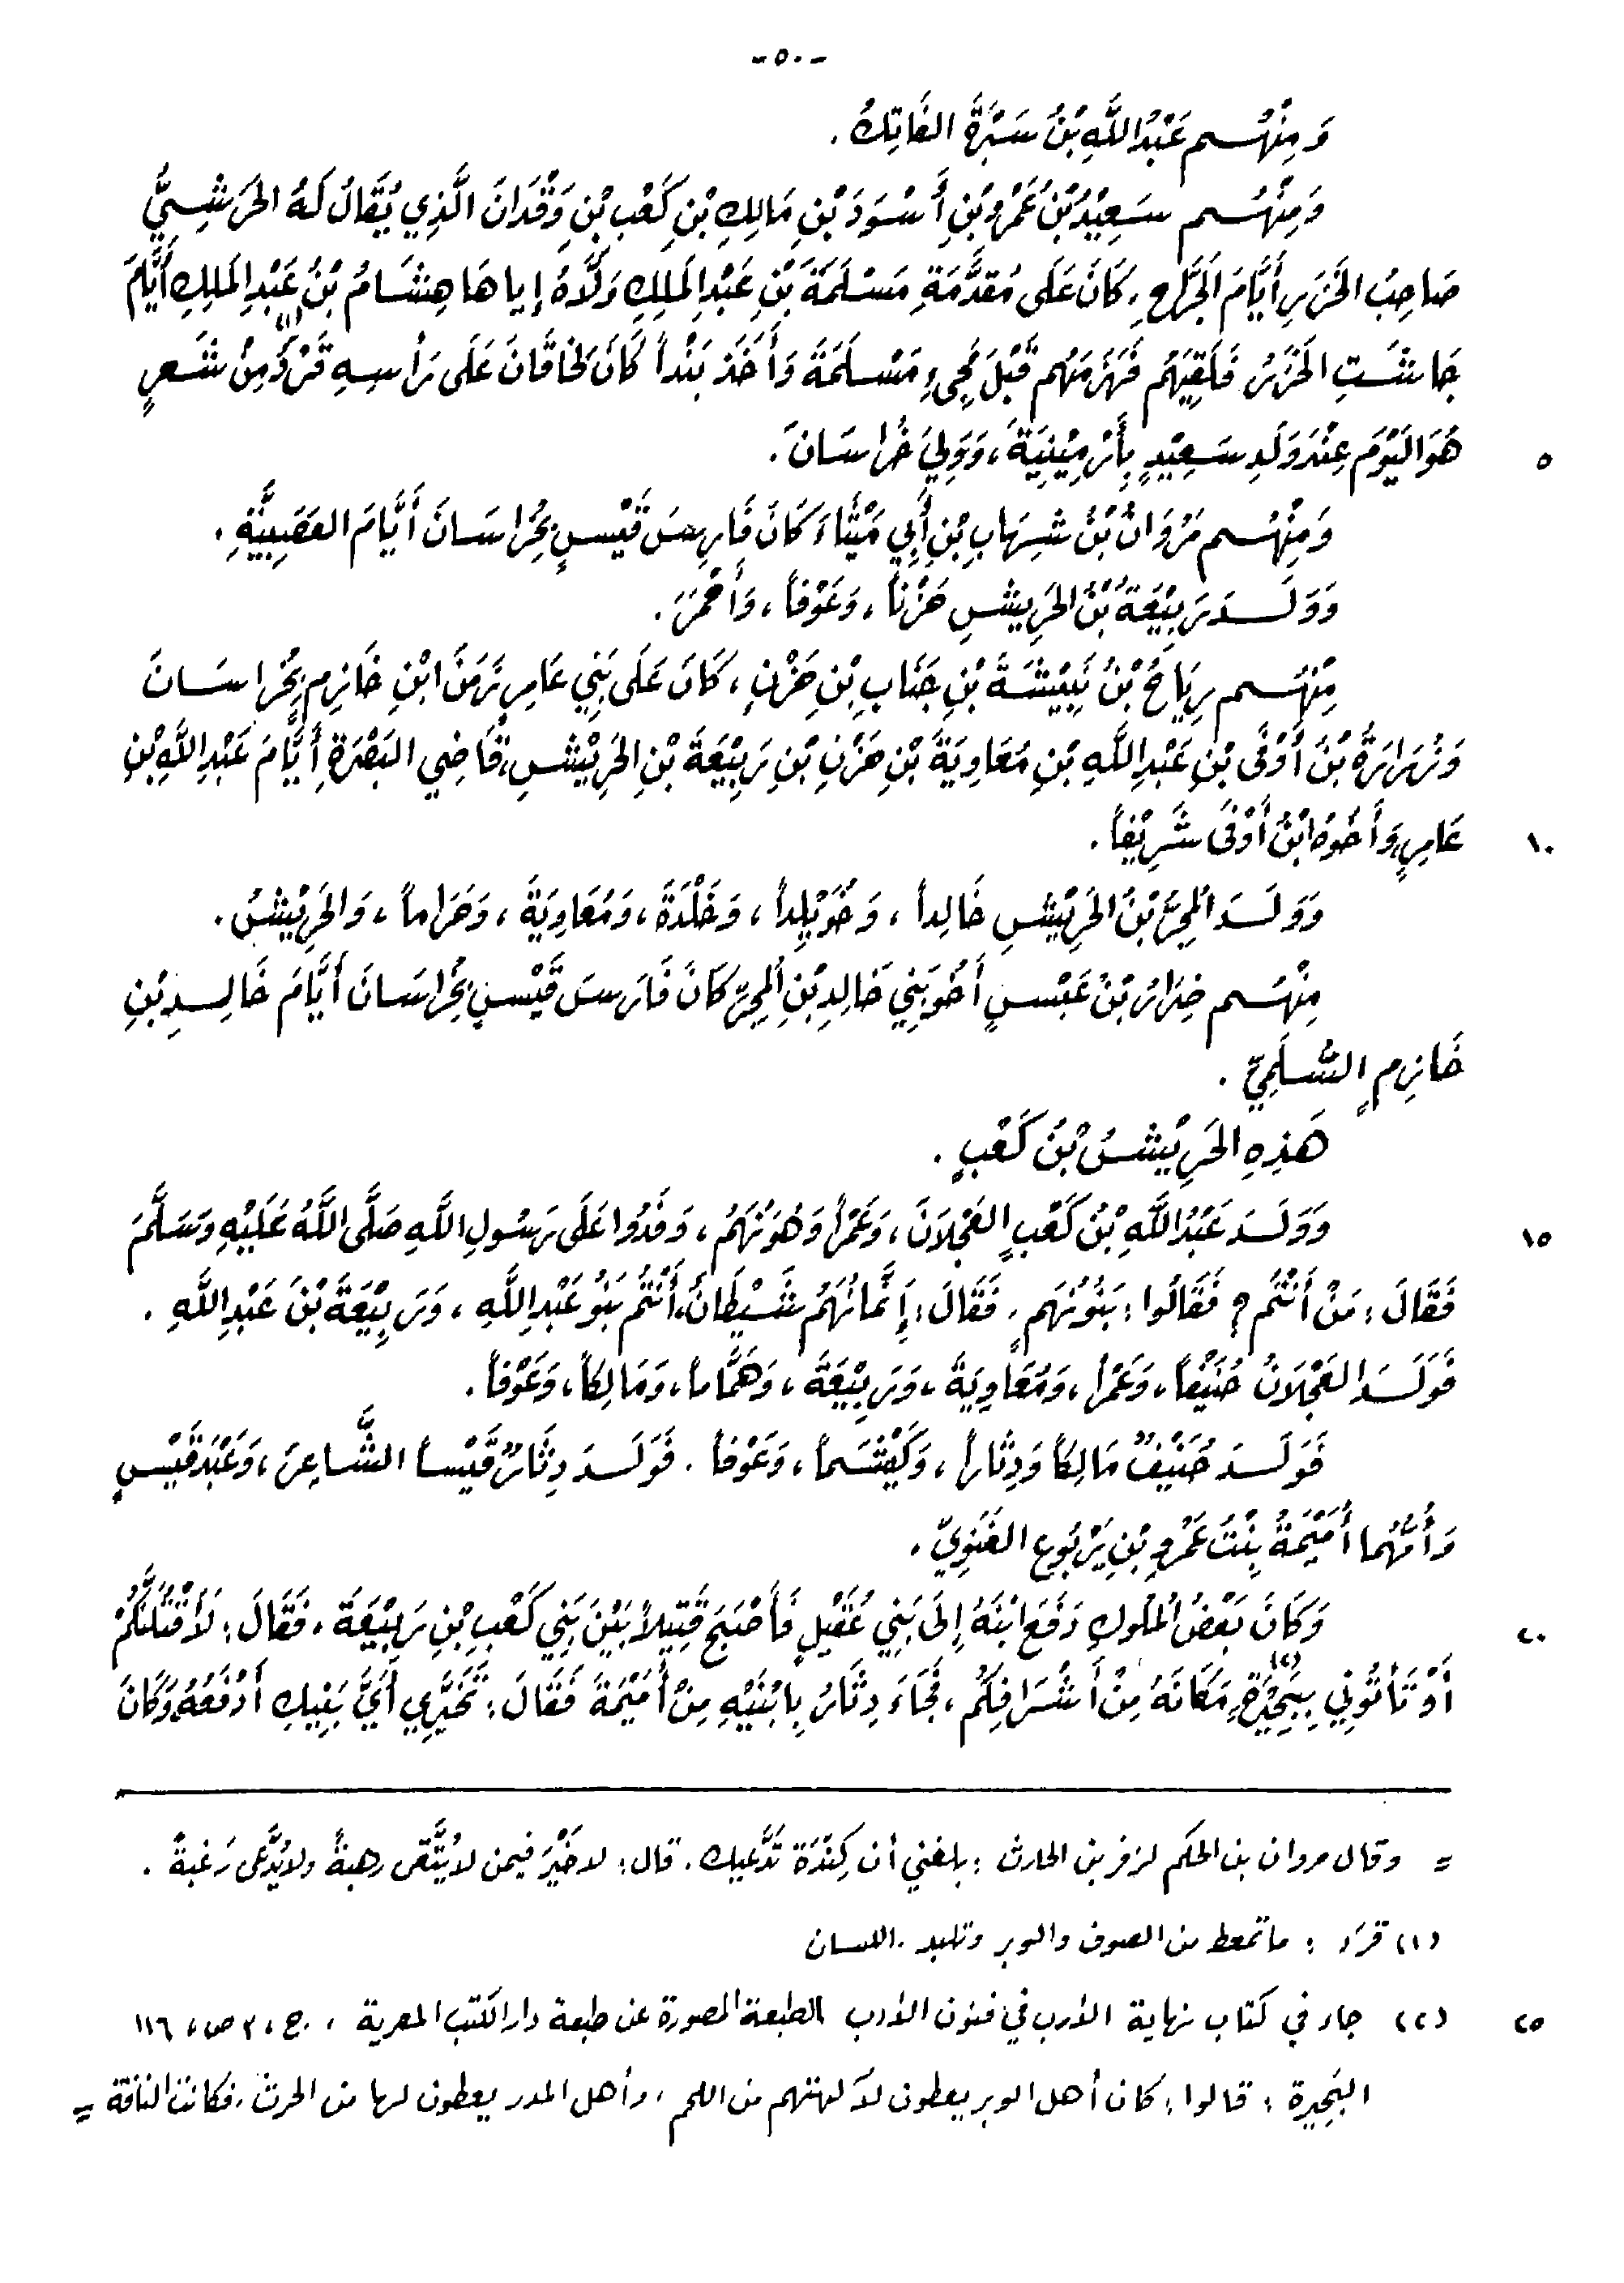 -٥٠-
وَمِنْهُم عَبْدُ اللَّهِ بْنُ سَبْرَةَ الفَاتِكُ .
وَمِنْهُم سَعِيْدُ بْنُ عَمْرِو بْنِ أَسْوَدَ بْنِ مَالِكِ بْنِ كَعْبِ بْنِ وَقْدَانَ الَّذِي يُقَالُ لَهُ الحَرَشِيُّ
صَاحِبُ الخَزَرِ أَيَّامَ الجَرَّاحِ ، كَانَ عَلَى مُقَدَّمَةِ مَسْلَمَةَ بْنِ عَبْدِ المَلِكِ وَلَّاهُ إياهَا هِشَامُ بْنُ عَبْدِ المَلِكِ أَيَّامَ
جَاشَتِ الخَزَرُ فَلَقِيَهُم فَهَزَمَهُم قَبْلَ مَجِيءِ مَسْلَمَةَ وَأَخَذَ بَنْداً كَانَ لِخَاقَانَ عَلَى رَأْسِهِ قَرَدٌ (١) مِنْ شَعرٍ
هُوَ اليَوْمَ عِنْدَ وَلَدِ سَعِيْدٍ بِأَرْمِيْنِيَةَ ، وَوَلِيَ خُرَاسَانَ . ٥
وَمِنْهُم مَرْوَانُ بْنُ شِهَابِ بْنِ أَبِي مَيْثَاءَ كَانَ فَارِسَ قَيْسٍ بِخُرَاسَانَ أَيَّامَ العَصَبِيَّةِ .
وَوَلَدَ رَبِيْعَةُ بْنُ الحَرِيشِ حَزْناً ، وَعَوْفاً ، وَأَحْمَرَ .
مِنْهُم رِيَاحُ بْنُ نُبَيْشَةَ بْنِ جَنَابِ بْنِ حَزْنٍ ، كَانَ عَلَى بَنِي عَامِرٍ زَمَنَ ابْنِ خَازِمٍ بِخُرَاسَانَ
وَزُرَارَةُ بْنُ أَوْفَى بْنِ عَبْدِ اللَّهِ بْنِ مُعَاوِيَةَ بْنِ حَزْنِ بْنِ رَبِيْعَةَ بْنِ الحَرِيْشِ ، قَاضِي البَصْرَةِ أَيَّامَ عَبْدِ اللَّهِ بْنِ
عَامِرٍ وَأَخُوهُ ابْنُ أَوْفَى شَرِيْفاً . ١٠
وَوَلَدَ المُحِرُّ بْنُ الحَرِيْشِ خَالِداً ، وَخُوَيْلِداً ، وَخَلْدَةَ ، وَمُعَاوِيَةَ ، وَحَرَاماً ، وَالحَرِيْشَ .
مِنْهُم ضِرَارُ بْنُ عَبْسٍ أَخُو بَنِي خَالِدِ بْنِ المُحِرِّ كَانَ فَارِسَ قَيْسٍ بِخُرَاسَانَ أَيَّامَ خَالِدِ بْنِ
خَازِمٍ السُّلَمِيِّ .
هَذِهِ الحَرِيْشُ بْنُ كَعْبٍ .
وَوَلَدَ عَبْدُ اللَّهِ بْنُ كَعْبٍ العَجْلَانَ ، وَعَمْراً وَهُوَ نُهْمُ ، وَفَدُوا عَلَى رَسُولِ اللَّهِ صَلَّى اللَّهُ عَلَيْهِ وَسَلَّمَ ١٥
فَقَالَ : مَنْ أَنْتُم ؟ فَقَالُوا : بَنُو نُهْمٍ ، فَقَالَ : إِنَّمَا نُهْمُ شَيْطَانٌ ، أَنْتُمْ بَنُو عَبْدِ اللَّهِ ، وَرَبِيْعَةَ بْنَ عَبْدِ اللَّهِ .
فَوَلَدَ العَجْلَانُ حُنَيْفاً ، وَعَمْراً ، وَمُعَاوِيَةَ ، وَرَبِيْعَةَ ، وَهَمَّاماً ، وَمَالِكاً ، وَعَوْفاً .
فَوَلَدَ حُنَيْفٌ مَالِكاً وَدِثَاراً ، وَكَيْشَماً ، وَعَوْفاً . فَوَلَدَ دِثَارٌ قَيْساً الشَّاعِرَ ، وَعَبْدَ قَيْسٍ
وَأُمُّهُما أُمَيْمَةُ بِنْتُ عَمْرِو بْنِ يَرْبُوعِ الغَنَوِيّ .
وَكَانَ بَعْضُ المُلُوكِ دَفَعَ ابْنَهُ إِلَى بَنِي عُقَيْلٍ فَأَصْبَحَ قَتِيلاً بَيْنَ بَنِي كَعْبِ بْنِ رَبِيْعَةَ ، فَقَالَ : لَأَقْتُلَنَّكُمْ ٢٠
أَوْ تَأْتُونِي مَكَانَهُ مِنْ أَشْرَافِكُم ، فَجَاءَ دِثَارُ بِابْنَيْهِ مِنْ أُمَيْمَةَ فَقَالَ : تَخَيَّرِي أَيَّ بَنِيكِ أَدْفَعُهُ ، وَكَانَ
= وقال مروان بن الحكم لزفر بن الحارث : بلغني أن كِنْدَةَ تَدَّعيك . قال : لا خَيْرَ فيمن لا يُتَّقى رهبةً ولا يُدَّعى رَغبةً .
(١) قرَد : ما تمعط من الصوف والوبر وتلبد . اللسان
(٢) جاء في كتاب نهاية الأرب في فنون الأدب الطبعة المصورة عن طبعة دار الكتب المصرية ، ج ، ٣ ص ، ١١٦ ٢٥
البَحِيرة : قالوا : كان أهل الوبر يعطون لآلهتهم من اللحم ، وأهل المدر يعطون لها من الحرث . فكانت الناقة =